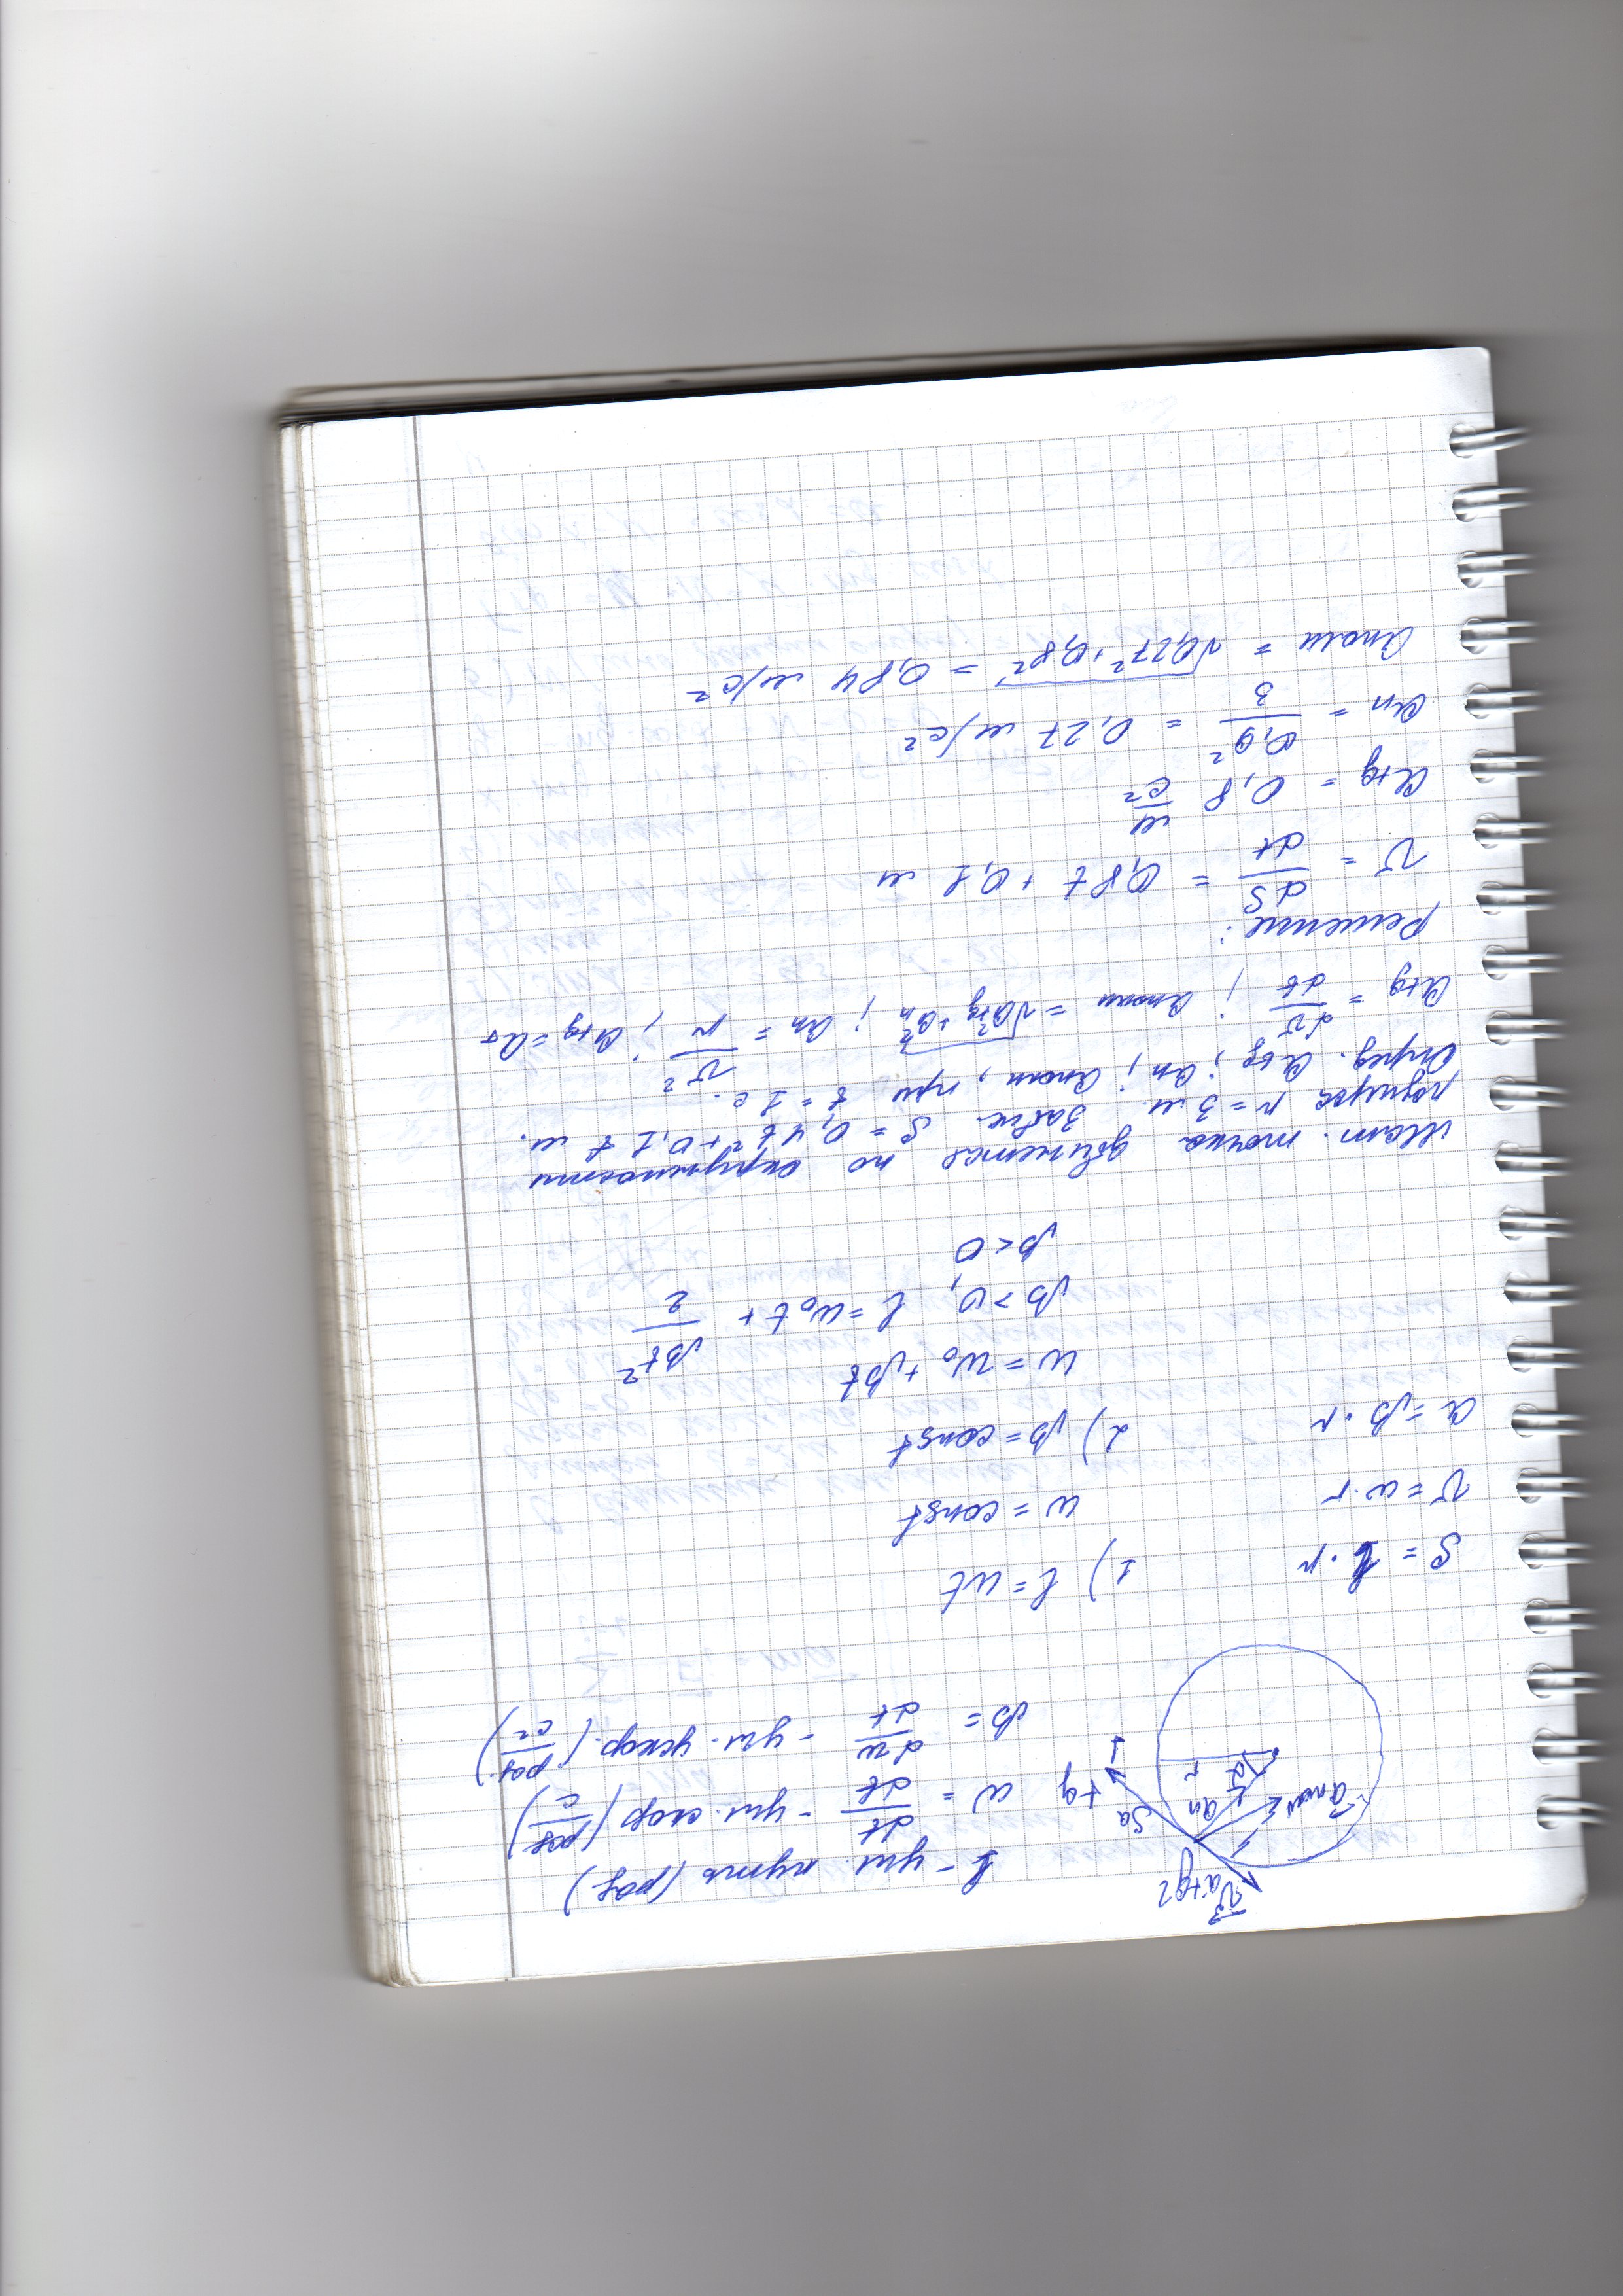 v⃗
a+g2
aполн
an
Sa
α
r
+g
1 - угл. путь (рад)
ω = dt/dt - угл. скор (рад/с)
β = dw/dt - угл. ускор. (рад./с²)
S = l · r
v = ω · r
a = β · r
1) l = ωt
ω = const
2) β = const
ω = ω₀ + βt
β > 0, l = ω₀t + βt²/2
β < 0
Мат. точка движется по окружности
радиуса r = 3 м. Завис. S = 0,4t² + 0,1 t м.
Опред. atg ; an ; aполн, при t = 1 с.
a+g = dv/dt ; aполн = √a²+g + a²n ; an = v²/r ; a+g = aτ
Решение:
v = dS/dt = 0,8t + 0,1 м
a+g = 0,8 м/с²
an = 0,9²/3 = 0,27 м/с²
aполн = √0,27² + 0,8² = 0,84 м/с²